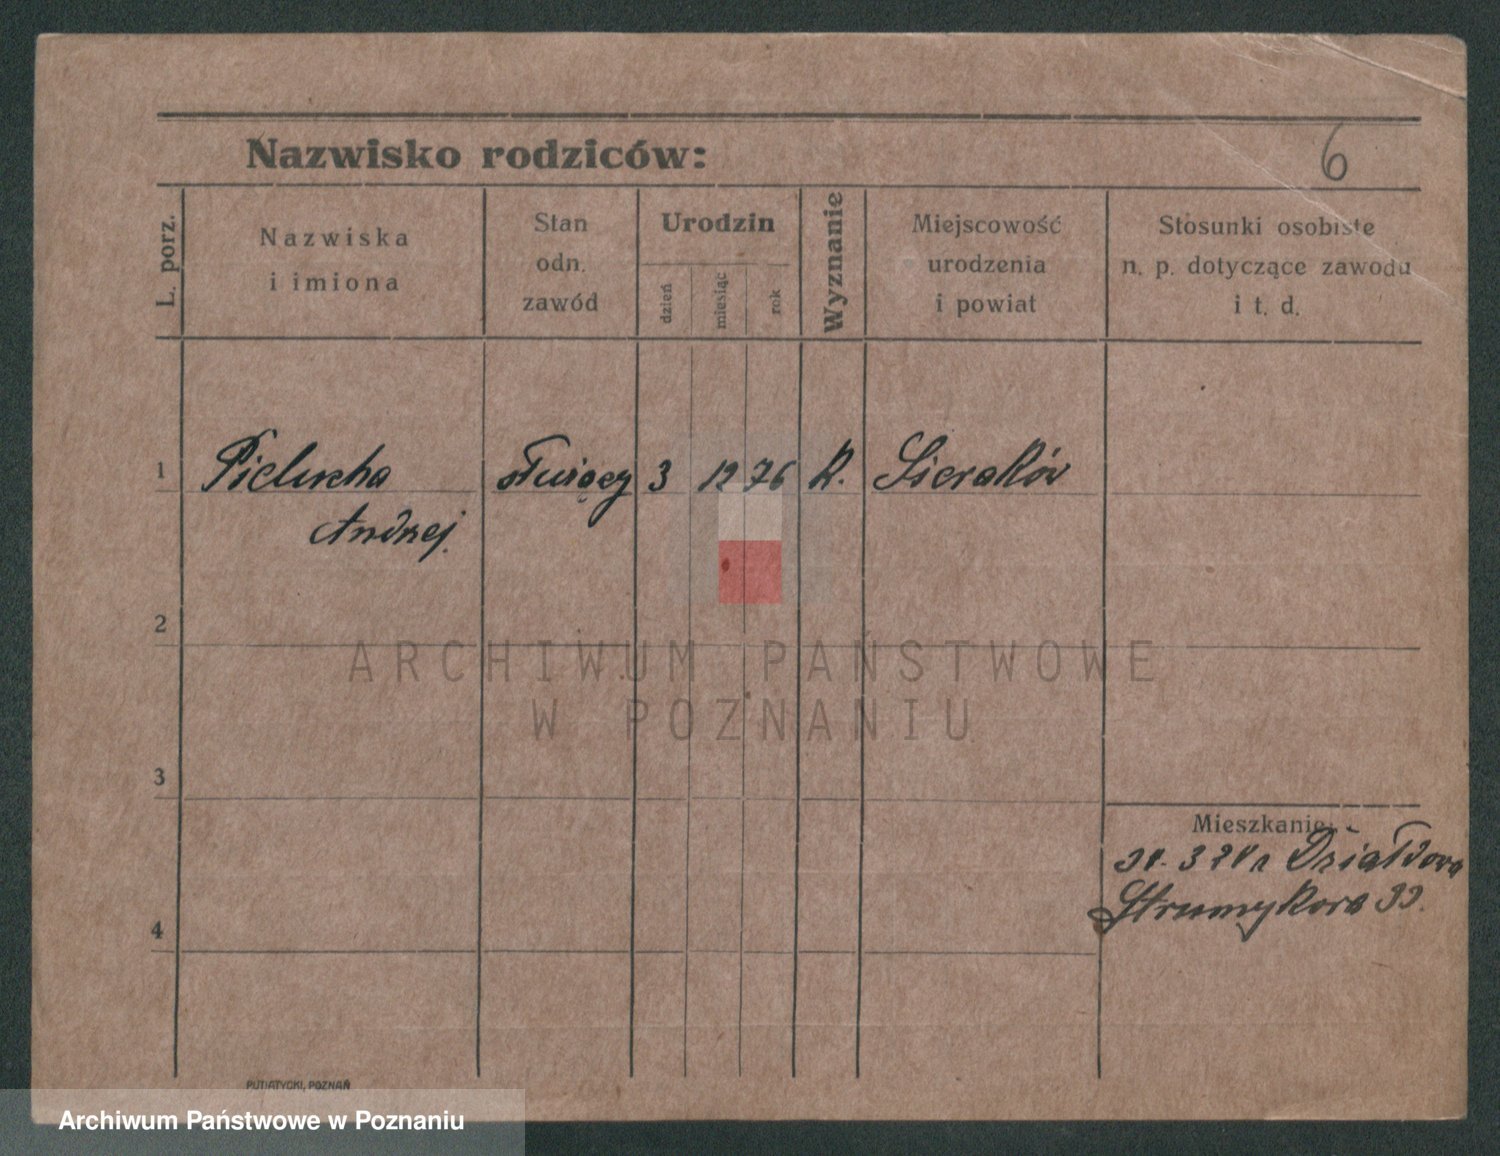 Nazwisko rodziców:
6
L. porz.
Nazwiska
i imiona
Stan
odn.
zawód
Urodzin
dzień
miesiąc
rok
Wyznanie
Miejscowość
urodzenia
i powiat
Stosunki osobiste
n. p. dotyczące zawodu
i t. d.
1 Pielucha służący 3 12 76 K. Sieraków
Andrzej.
2
ARCHIWUM PAŃSTWOWE
W POZNANIU
3
Mieszkanie:
Działdowa
4
PUTIATYCKI, POZNAŃ
Archiwum Państwowe w Poznaniu